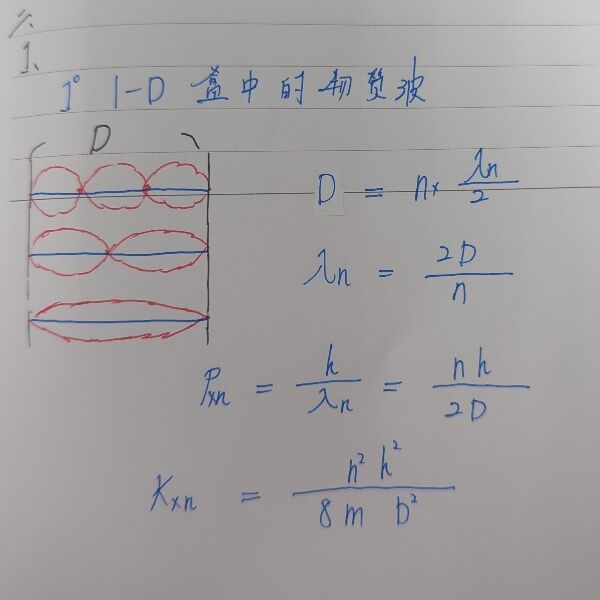 二、
1、
1° 1-D 盒中的物质波
D
D = n× λn/2
λn = 2D/n
Pxn = h/λn = nh/2D
Kxn = n²h²/8mD²